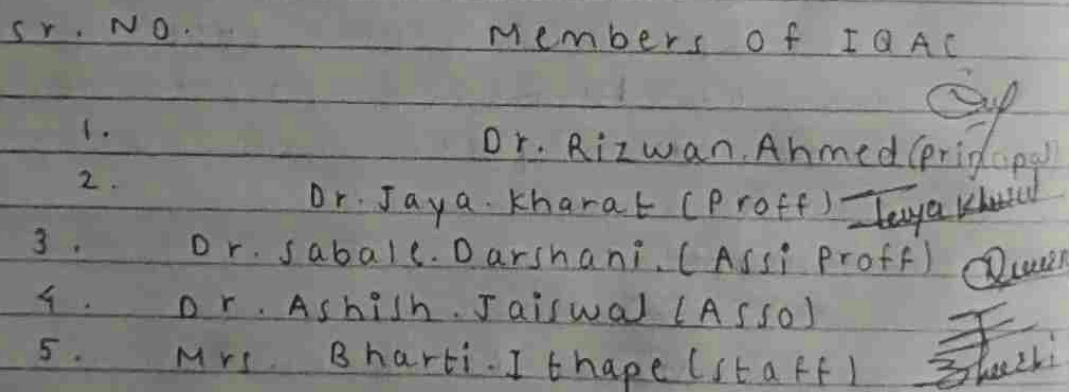 Sr. No. Members of IQAC
1. Dr. Rizwan. Ahmed (principal)
2. Dr. Jaya. Kharat (Proff) Jaya Kharat
3. Dr. Sabale. Darshani. (Assi Proff)
4. Dr. Ashish. Jaiswal (Asso)
5. Mrs. Bharti. Ithape (staff)